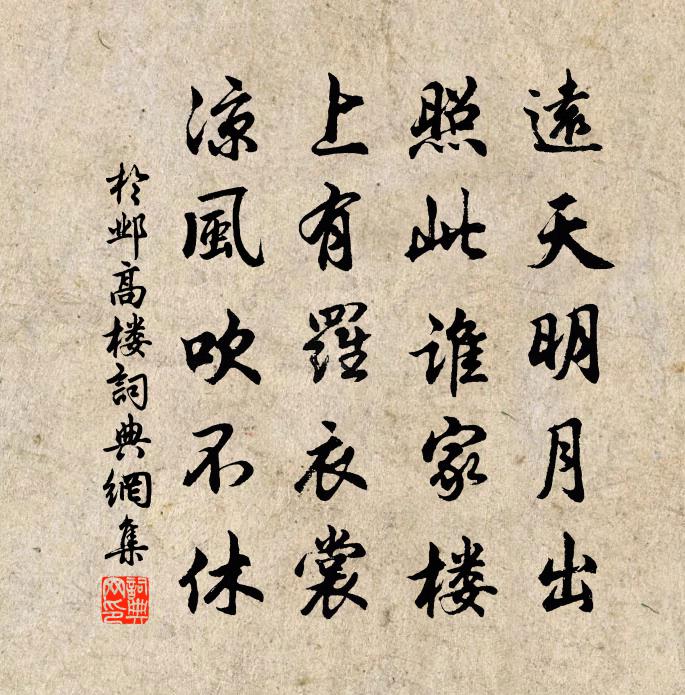 遠天明月出
照此谁家楼
上有羅衣裳
凉風吹不休
於邺高楼詞典網集
詞典网印